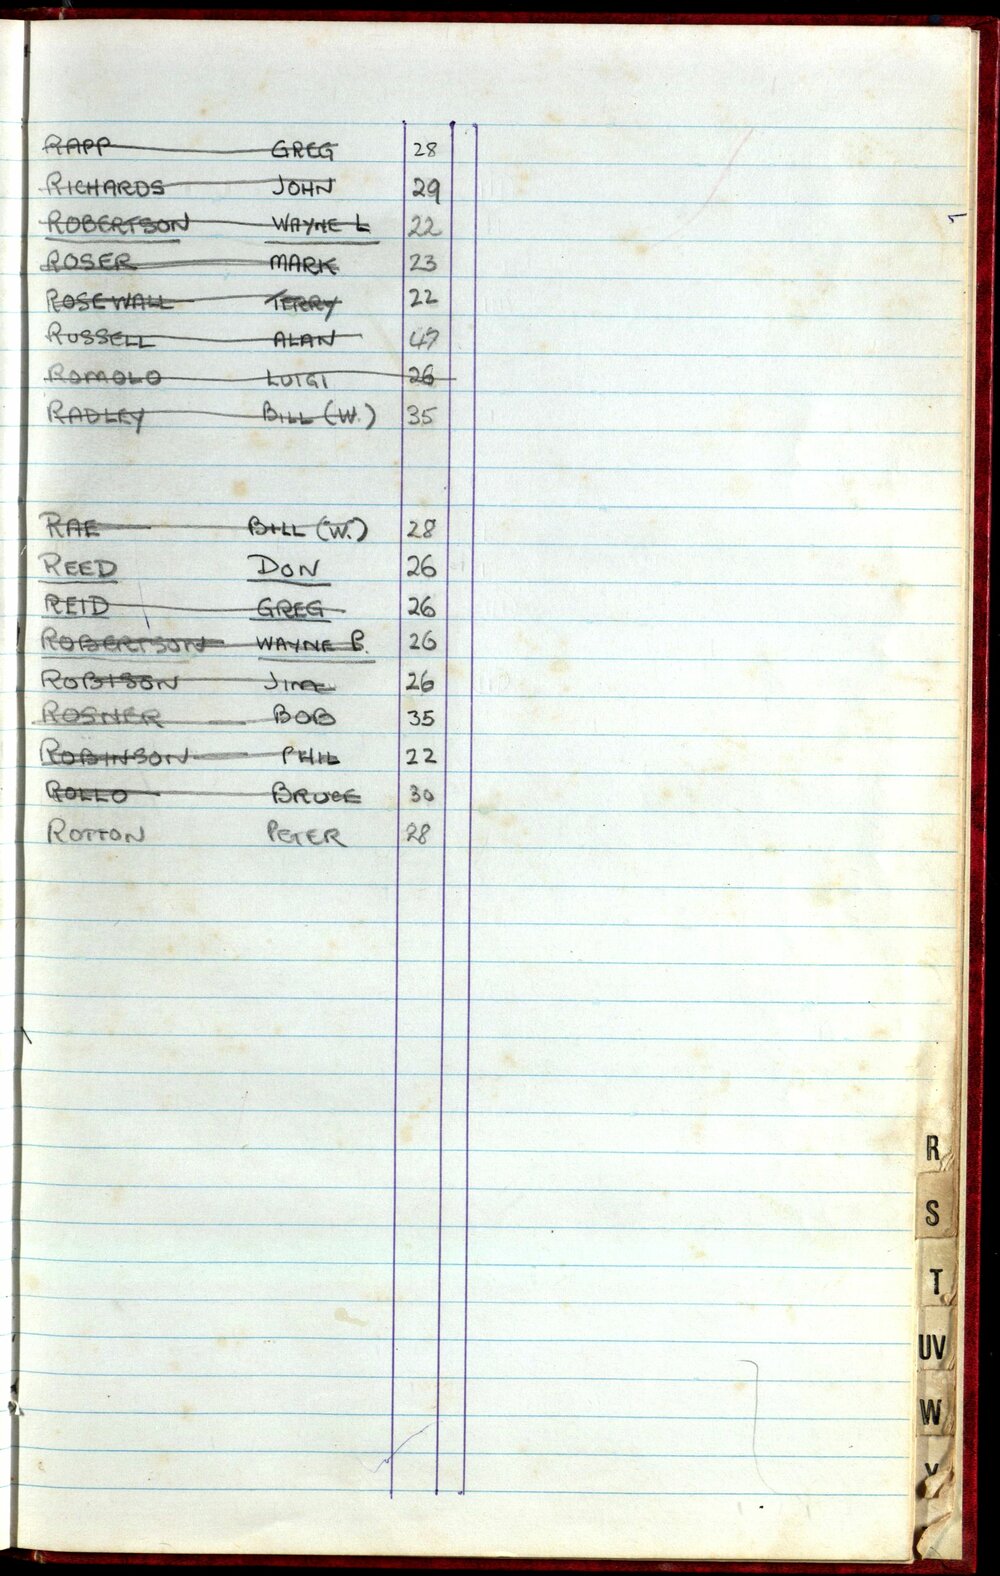 RAPP GREG 28
RICHARDS JOHN 29
ROBERTSON WAYNE L 22
ROSER MARK 23
ROSEWALL TERRY 22
RUSSELL ALAN 47
ROMOLO LUIGI 26
RADLEY BILL (W.) 35
RAE BILL (W.) 28
REED DON 26
REID GREG 26
ROBERTSON WAYNE B. 26
ROBISON JIM 26
ROSNER BOB 35
ROBINSON PHIL 22
ROLLO BRUCE 30
ROTTON PETER 28
R
S
T
UV
W